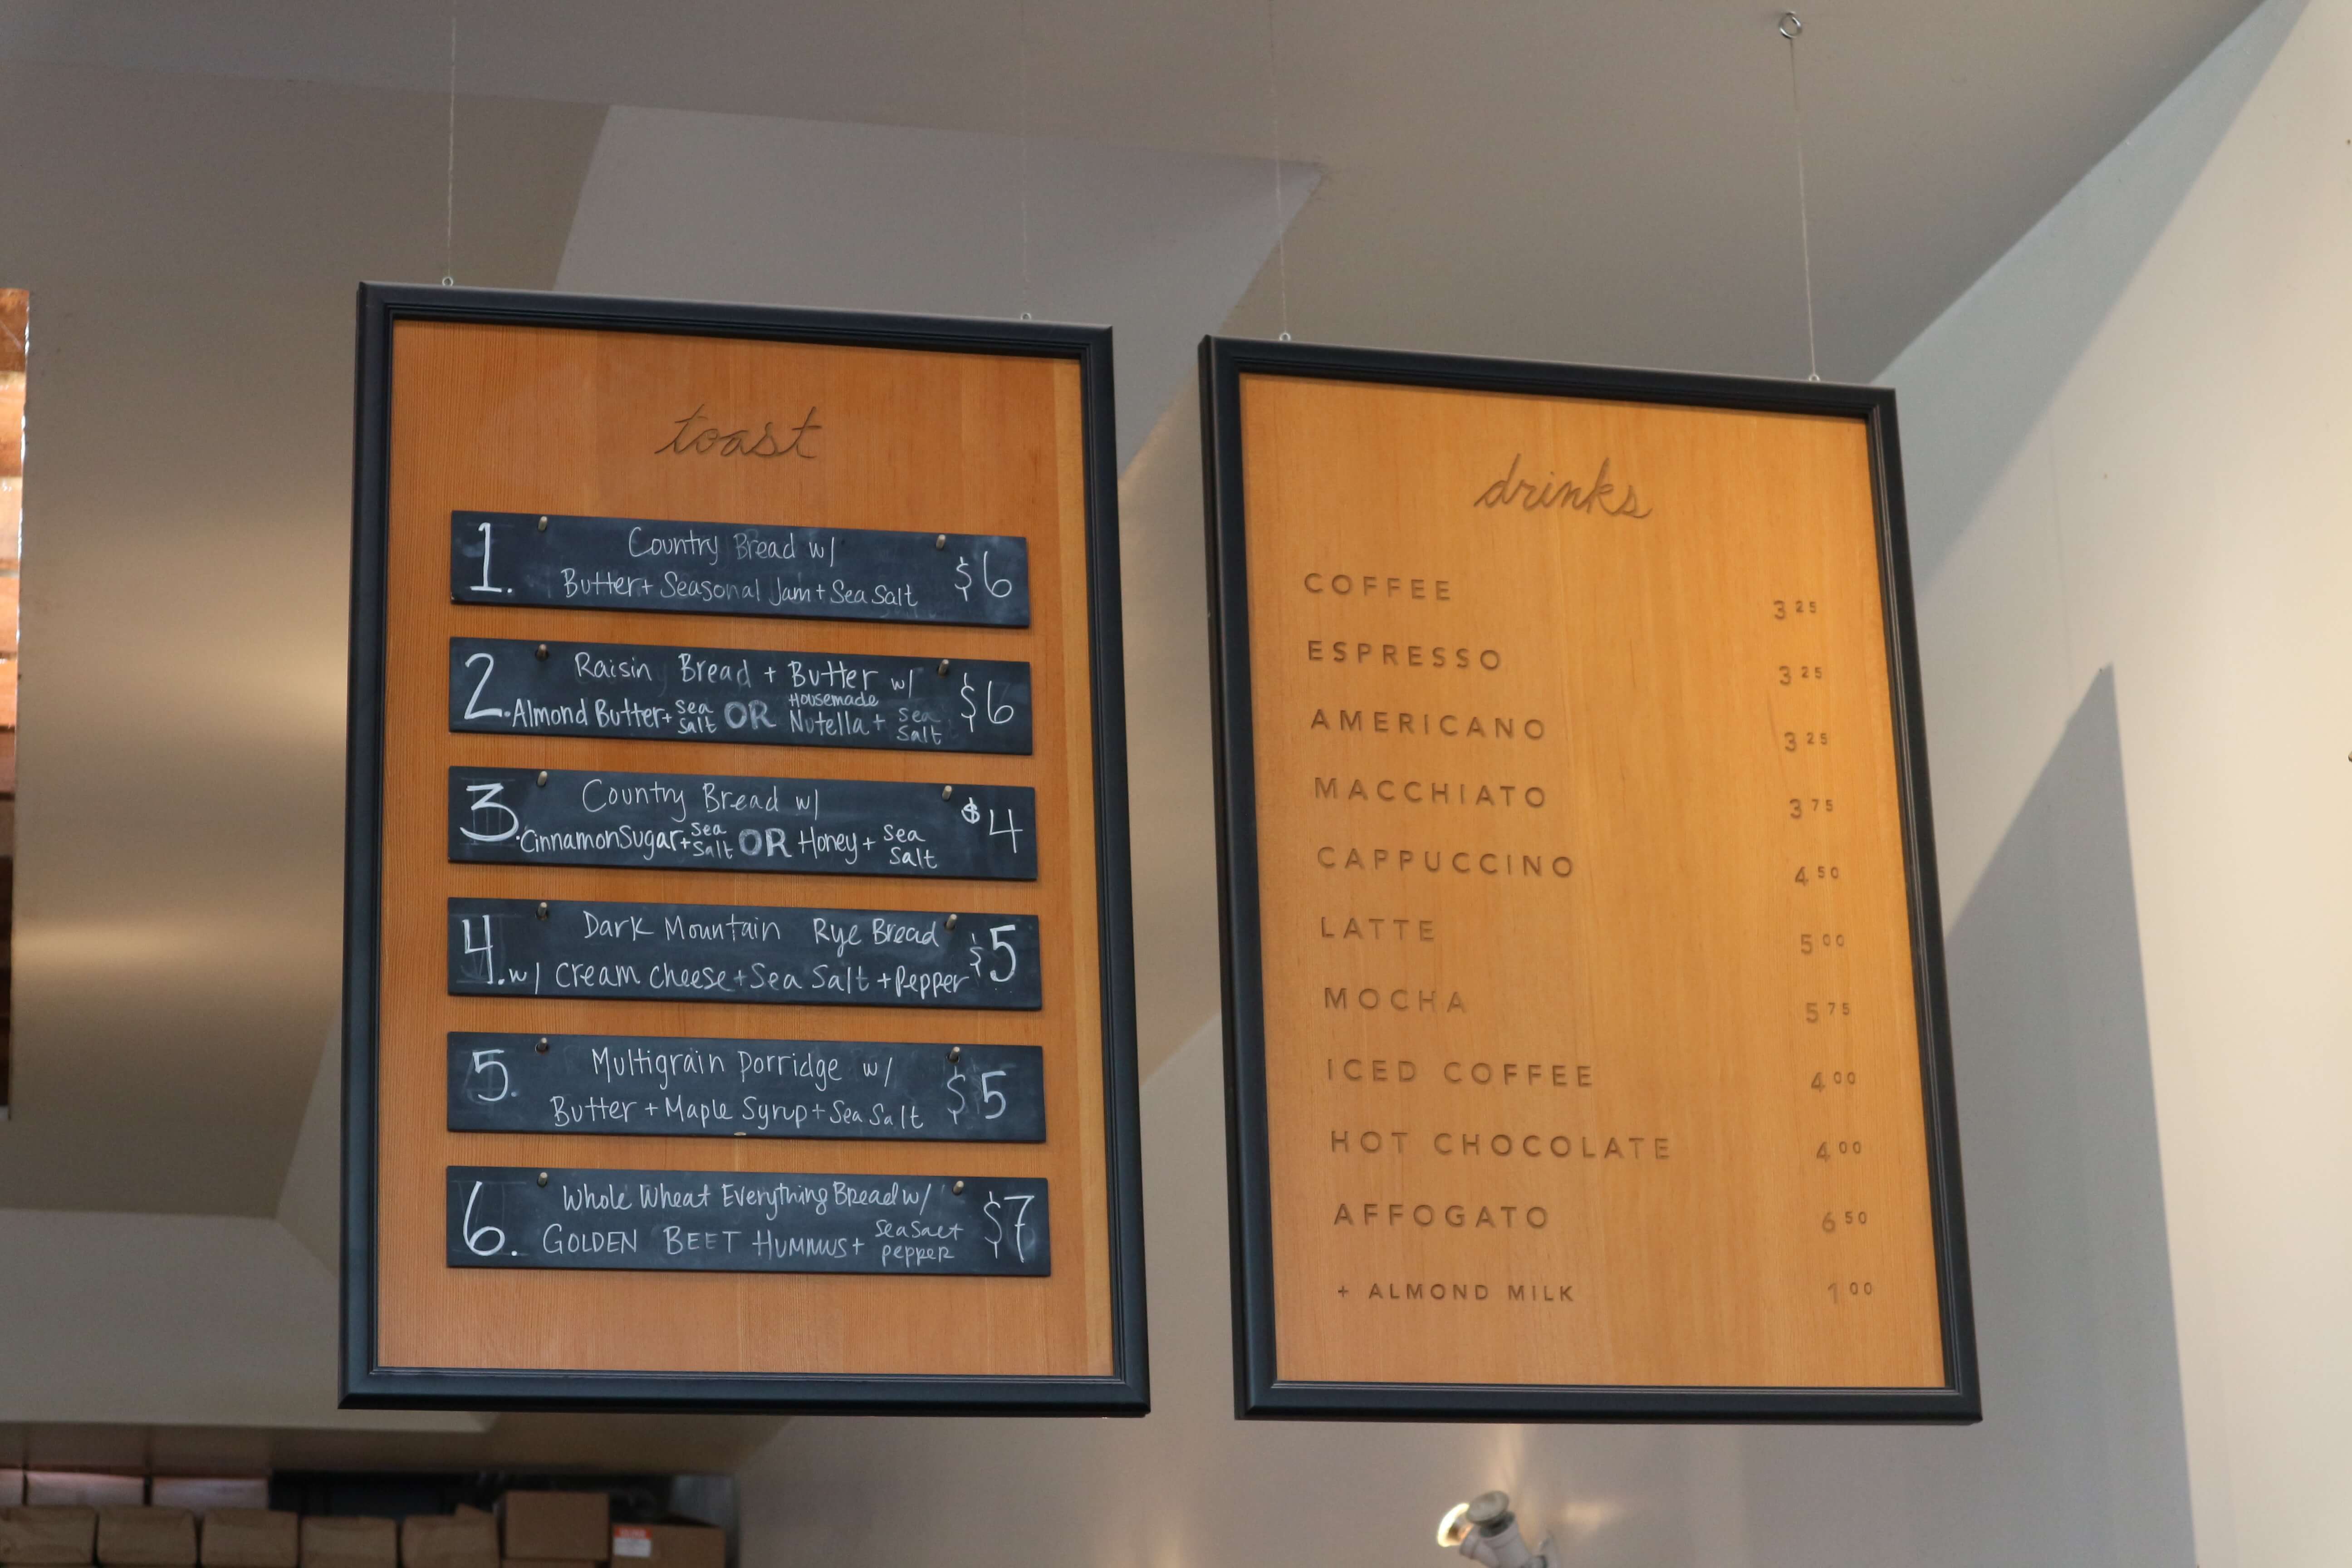 toast
1. Country Bread w/
Butter + Seasonal Jam + Sea Salt $6
2. Raisin Bread + Butter w/
Almond Butter + Sea Salt OR Housemade Nutella + Sea Salt $6
3. Country Bread w/
Cinnamon Sugar + Sea Salt OR Honey + Sea Salt $4
4. Dark Mountain Rye Bread
w/ Cream Cheese + Sea Salt + Pepper $5
5. Multigrain Porridge w/
Butter + Maple Syrup + Sea Salt $5
6. Whole Wheat Everything Bread w/
GOLDEN BEET HUMMUS + Sea Salt pepper $7
drinks
COFFEE 3 25
ESPRESSO 3 25
AMERICANO 3 25
MACCHIATO 3 75
CAPPUCCINO 4 50
LATTE 5 00
MOCHA 5 75
ICED COFFEE 4 00
HOT CHOCOLATE 4 00
AFFOGATO 6 50
+ ALMOND MILK 1 00